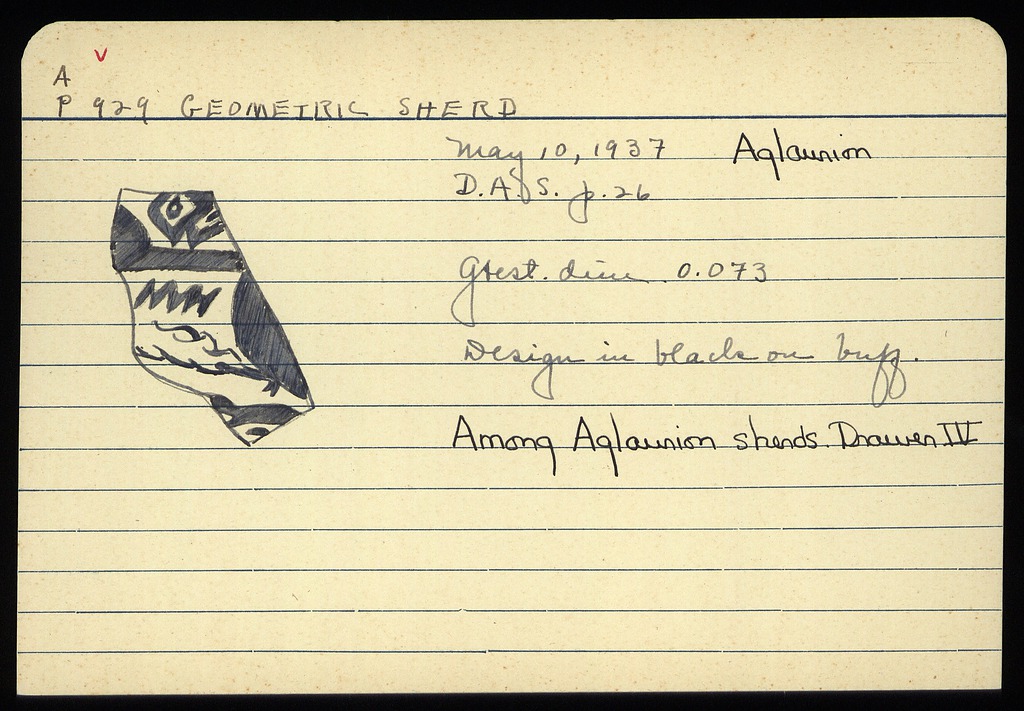 v
A
P 929 GEOMETRIC SHERD
May 10, 1937 Aglaurion
D.A.S. p. 26
Gtest. dim. 0.073
Design in black on buff.
Among Aglaurion sherds. Drawer IV